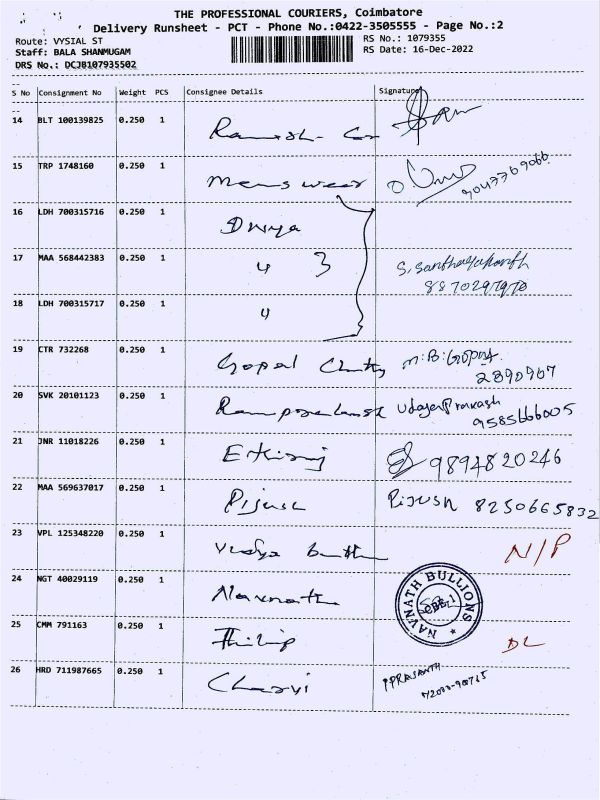 THE PROFESSIONAL COURIERS, Coimbatore
Delivery Runsheet - PCT - Phone No.:0422-3505555 - Page No.:2
Route: VYSIAL ST
RS No.: 1079355
Staff: BALA SHANMUGAM
RS Date: 16-Dec-2022
DRS No.: DCJB107935502
S No Consignment No Weight PCS Consignee Details Signature
14 BLT 100139825 0.250 1 Ramesh
15 TRP 1748160 0.250 1 Mens wear
16 LDH 700315716 0.250 1 Divya
17 MAA 568442383 0.250 1 " 3
8870297970
18 LDH 700315717 0.250 1 "
19 CTR 732268 0.250 1 Gopal Chetty M.B. Gopal
2890907
20 SVK 20101123 0.250 1 Udaya Prakash
9585666005
21 JNR 11018226 0.250 1 9894820246
22 MAA 569637017 0.250 1 Pijush Pijush 8250665832
23 VPL 125348220 0.250 1 N/P
24 NGT 40029119 0.250 1 Navnath
NAVNATH BULLIONS
CBE-1
25 CMM 791163 0.250 1 Philip DL
26 HRD 711987665 0.250 1 Charvi P PRASANTH